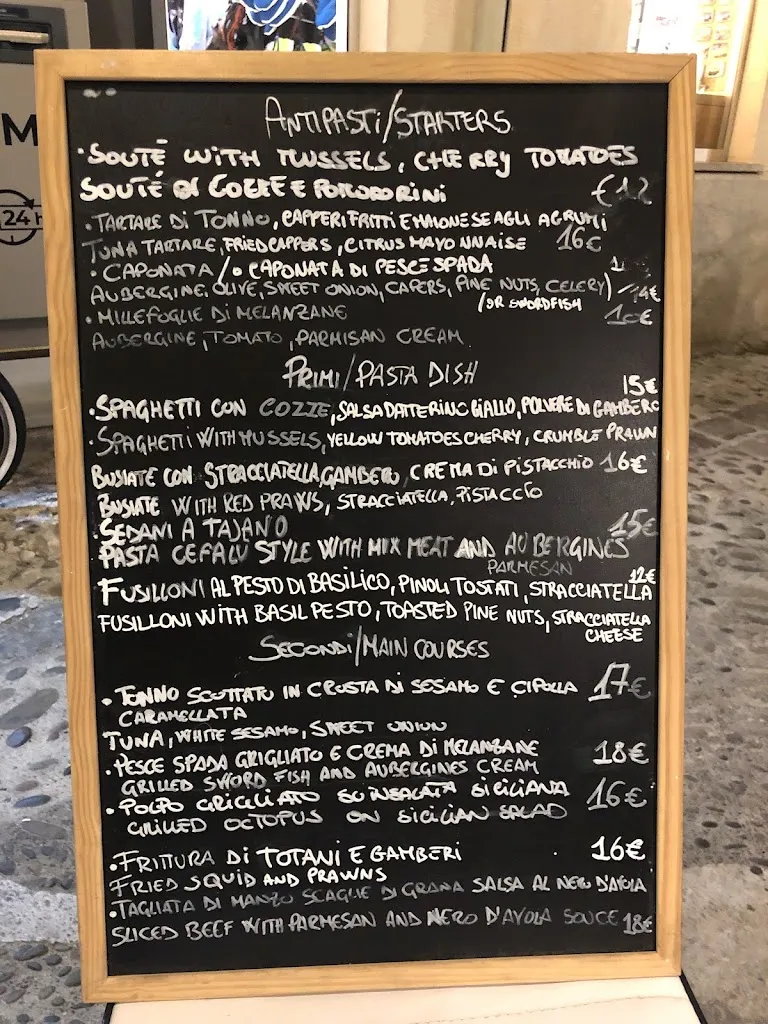 M
24 h
ANTIPASTI/STARTERS
• SOUTÉ WITH MUSSELS, CHERRY TOMATOES
SOUTÉ DI COZZE E POMODORINI €12
• TARTARE DI TONNO, CAPPERI FRITTI E MAIONESE AGLI AGRUMI
TUNA TARTARE, FRIED CAPPERS, CITRUS MAYONNAISE 16€
• CAPONATA / O CAPONATA DI PESCE SPADA
AUBERGINE, OLIVE, SWEET ONION, CAPERS, PINE NUTS, CELERY) /14€
/OR SWORDFISH
• MILLEFOGLIE DI MELANZANE 10€
AUBERGINE, TOMATO, PARMISAN CREAM
PRIMI/PASTA DISH
15€
• SPAGHETTI CON COZZE, SALSA DATTERINO GIALLO, POLVERE DI GAMBERO
• SPAGHETTI WITH MUSSELS, YELLOW TOMATOES CHERRY, CRUMBLE PRAWN
BUSIATE CON STRACCIATELLA, GAMBERO, CREMA DI PISTACCHIO 16€
BUSIATE WITH RED PRAWS, STRACCIATELLA, PISTACCIO
• SEDANI A TAJANO 15€
PASTA CEFALU STYLE WITH MIX MEAT AND AUBERGINES
PARMESAN
12€
FUSILLONI AL PESTO DI BASILICO, PINOLI TOSTATI, STRACCIATELLA
FUSILLONI WITH BASIL PESTO, TOASTED PINE NUTS, STRACCIATELLA
CHEESE
SECONDI/MAIN COURSES
• TONNO SCOTTATO IN CROSTA DI SESAMO E CIPOLLA 17€
CARAMELLATA
TUNA, WHITE SESAMO, SWEET ONION
• PESCE SPADA GRIGLIATO E CREMA DI MELANZANE 18€
GRILLED SWORD FISH AND AUBERGINES CREAM
• POLPO GRIGLIATO SU INSALATA SICILIANA 16€
GRILLED OCTOPUS ON SICILIAN SALAD
• FRITTURA DI TOTANI E GAMBERI 16€
FRIED SQUID AND PRAWNS
• TAGLIATA DI MANZO SCAGLIE DI GRANA SALSA AL NERO D'AVOLA
SLICED BEEF WITH PARMESAN AND NERO D'AVOLA SOUCE 18€